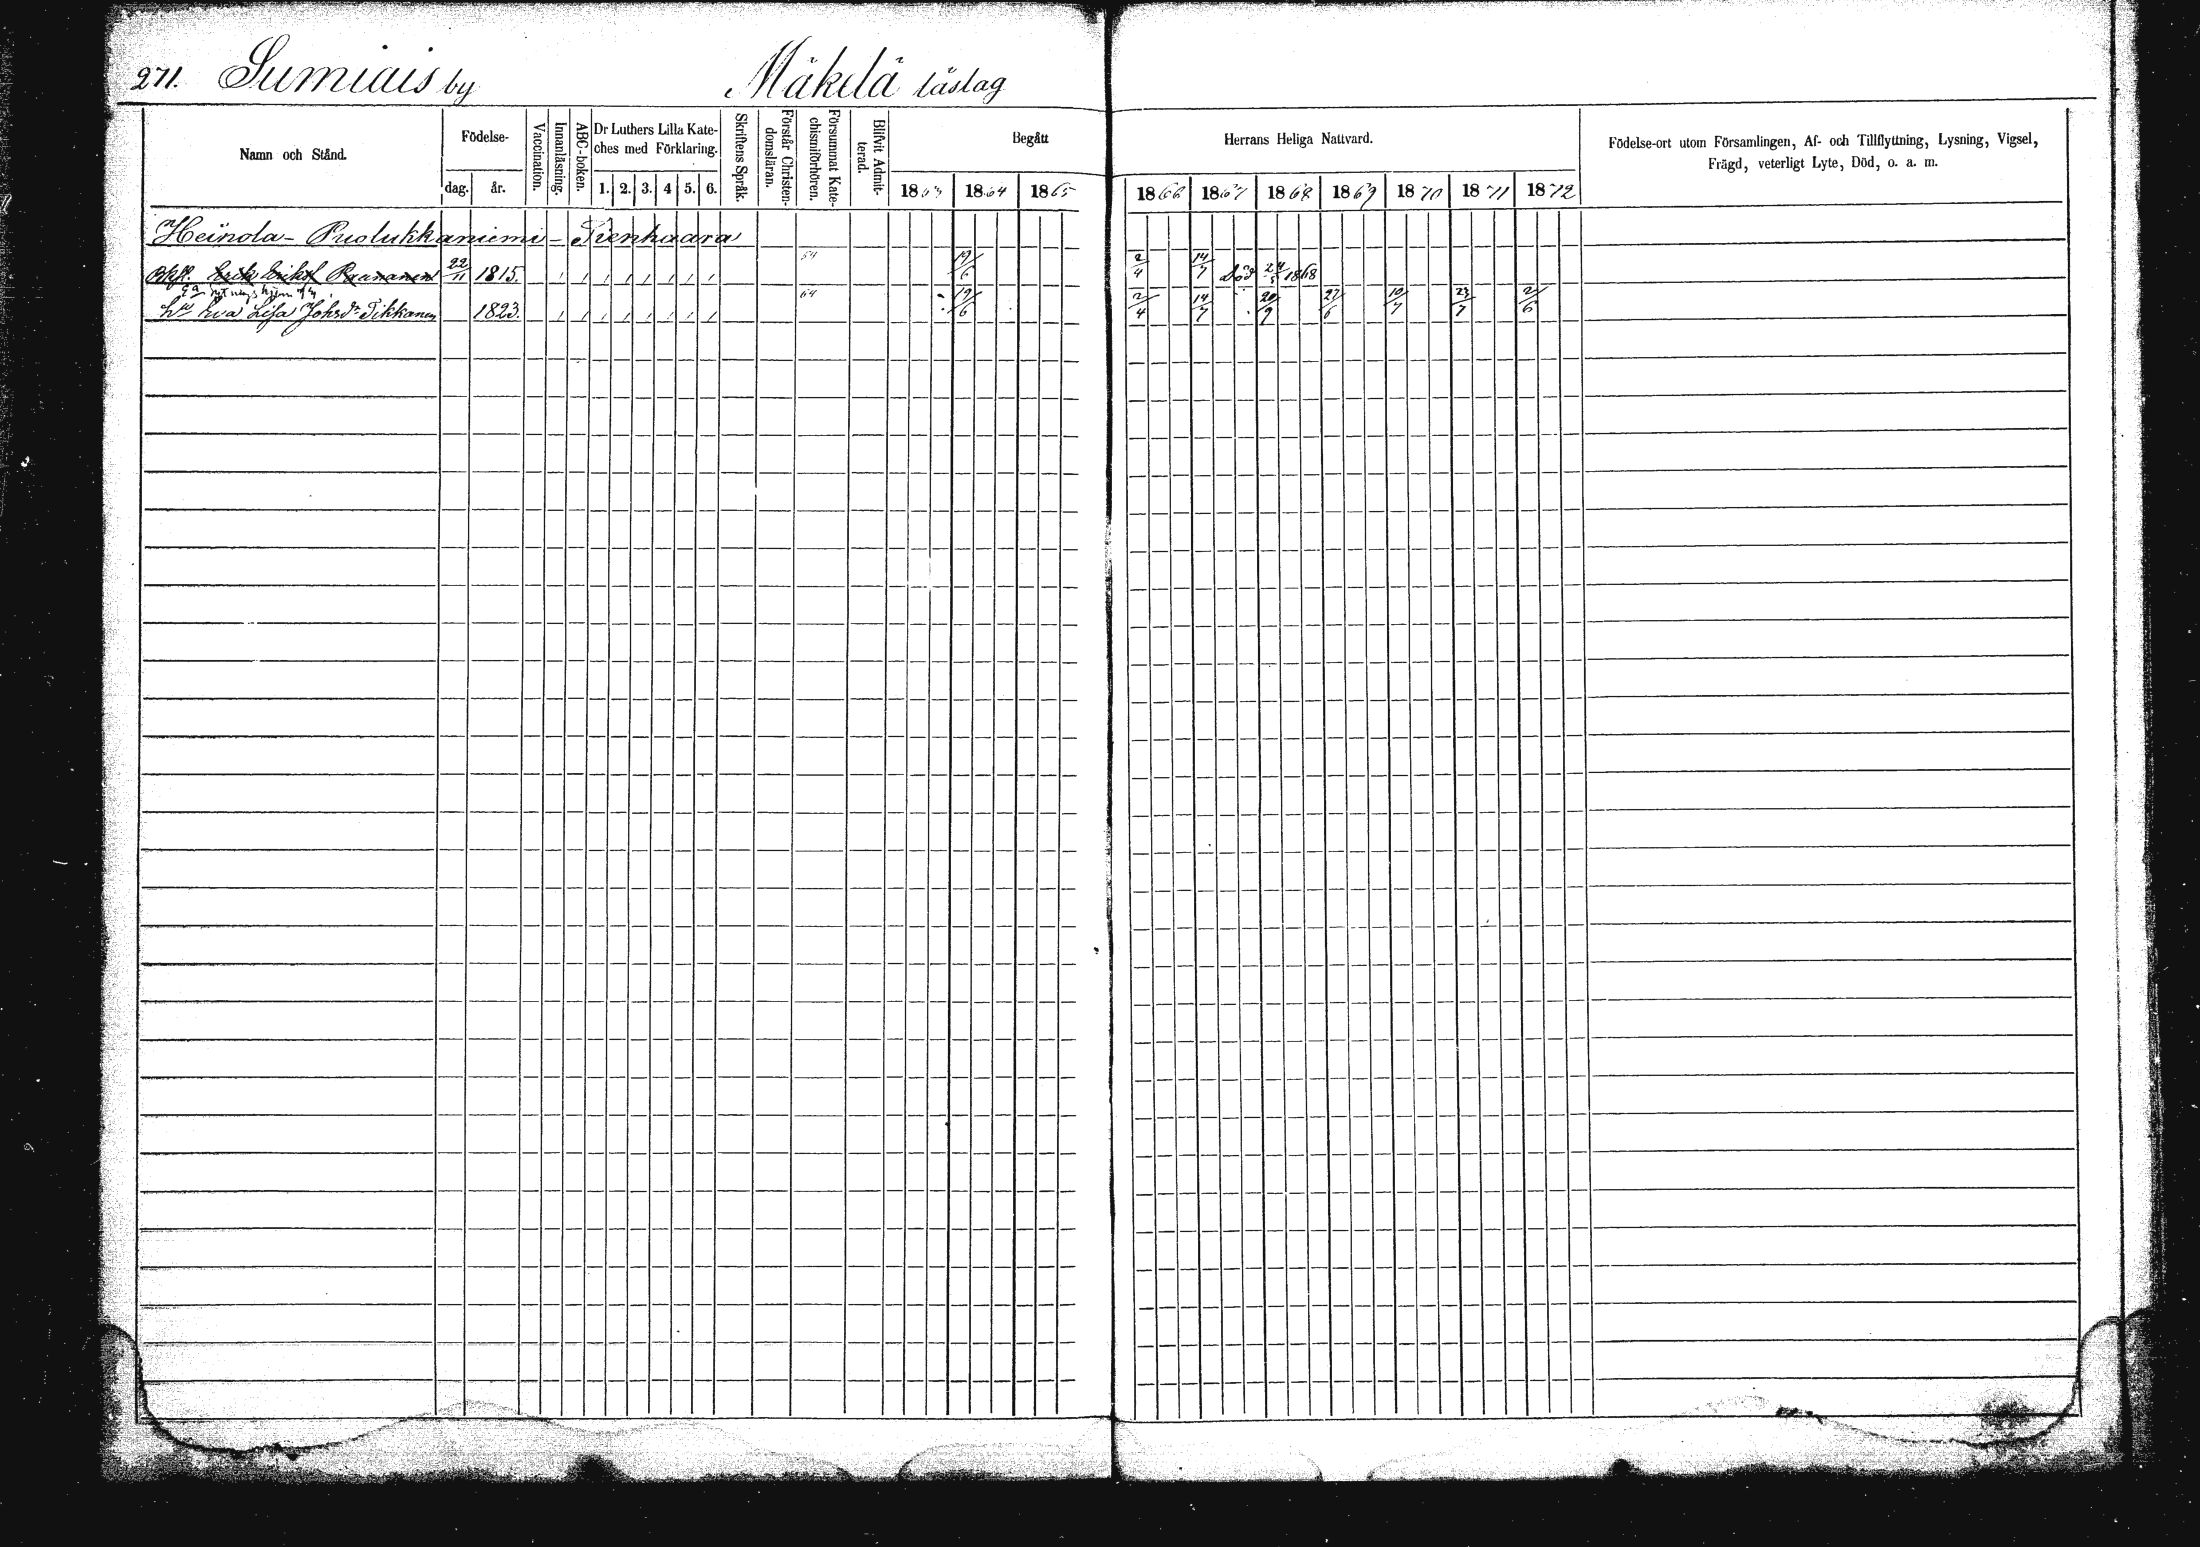 271. Sumiais by Mäkelä läslag
Namn och Stånd.
Födelse-
dag. år.
Vaccination.
Innanläsning.
ABC-boken.
Dr Luthers Lilla Kate-
ches med Förklaring.
1. 2. 3. 4 5. 6.
Skriftens Språk.
Förstår Christen-
domsläran.
Försummat Kate-
chismiförhören.
Blifvit Admit-
terad.
Begått Herrans Heliga Nattvard.
1863 1864 1865 1866 1867 1868 1869 1870 1871 1872
Födelse-ort utom Församlingen, Af- och Tillflyttning, Lysning, Vigsel,
Frägd, veterligt Lyte, Död, o. a. m.
Heinola - Puolukkaniemi - Pienhaara
Erik Eriks Paananen 22/11 1815. 64 19/6 2/4 14/7 Död 24/5 1868
Eva Lisa Johsdr Tikkanen 1823. 64 19/6 2/4 14/7 20/9 27/6 10/7 23/7 2/6